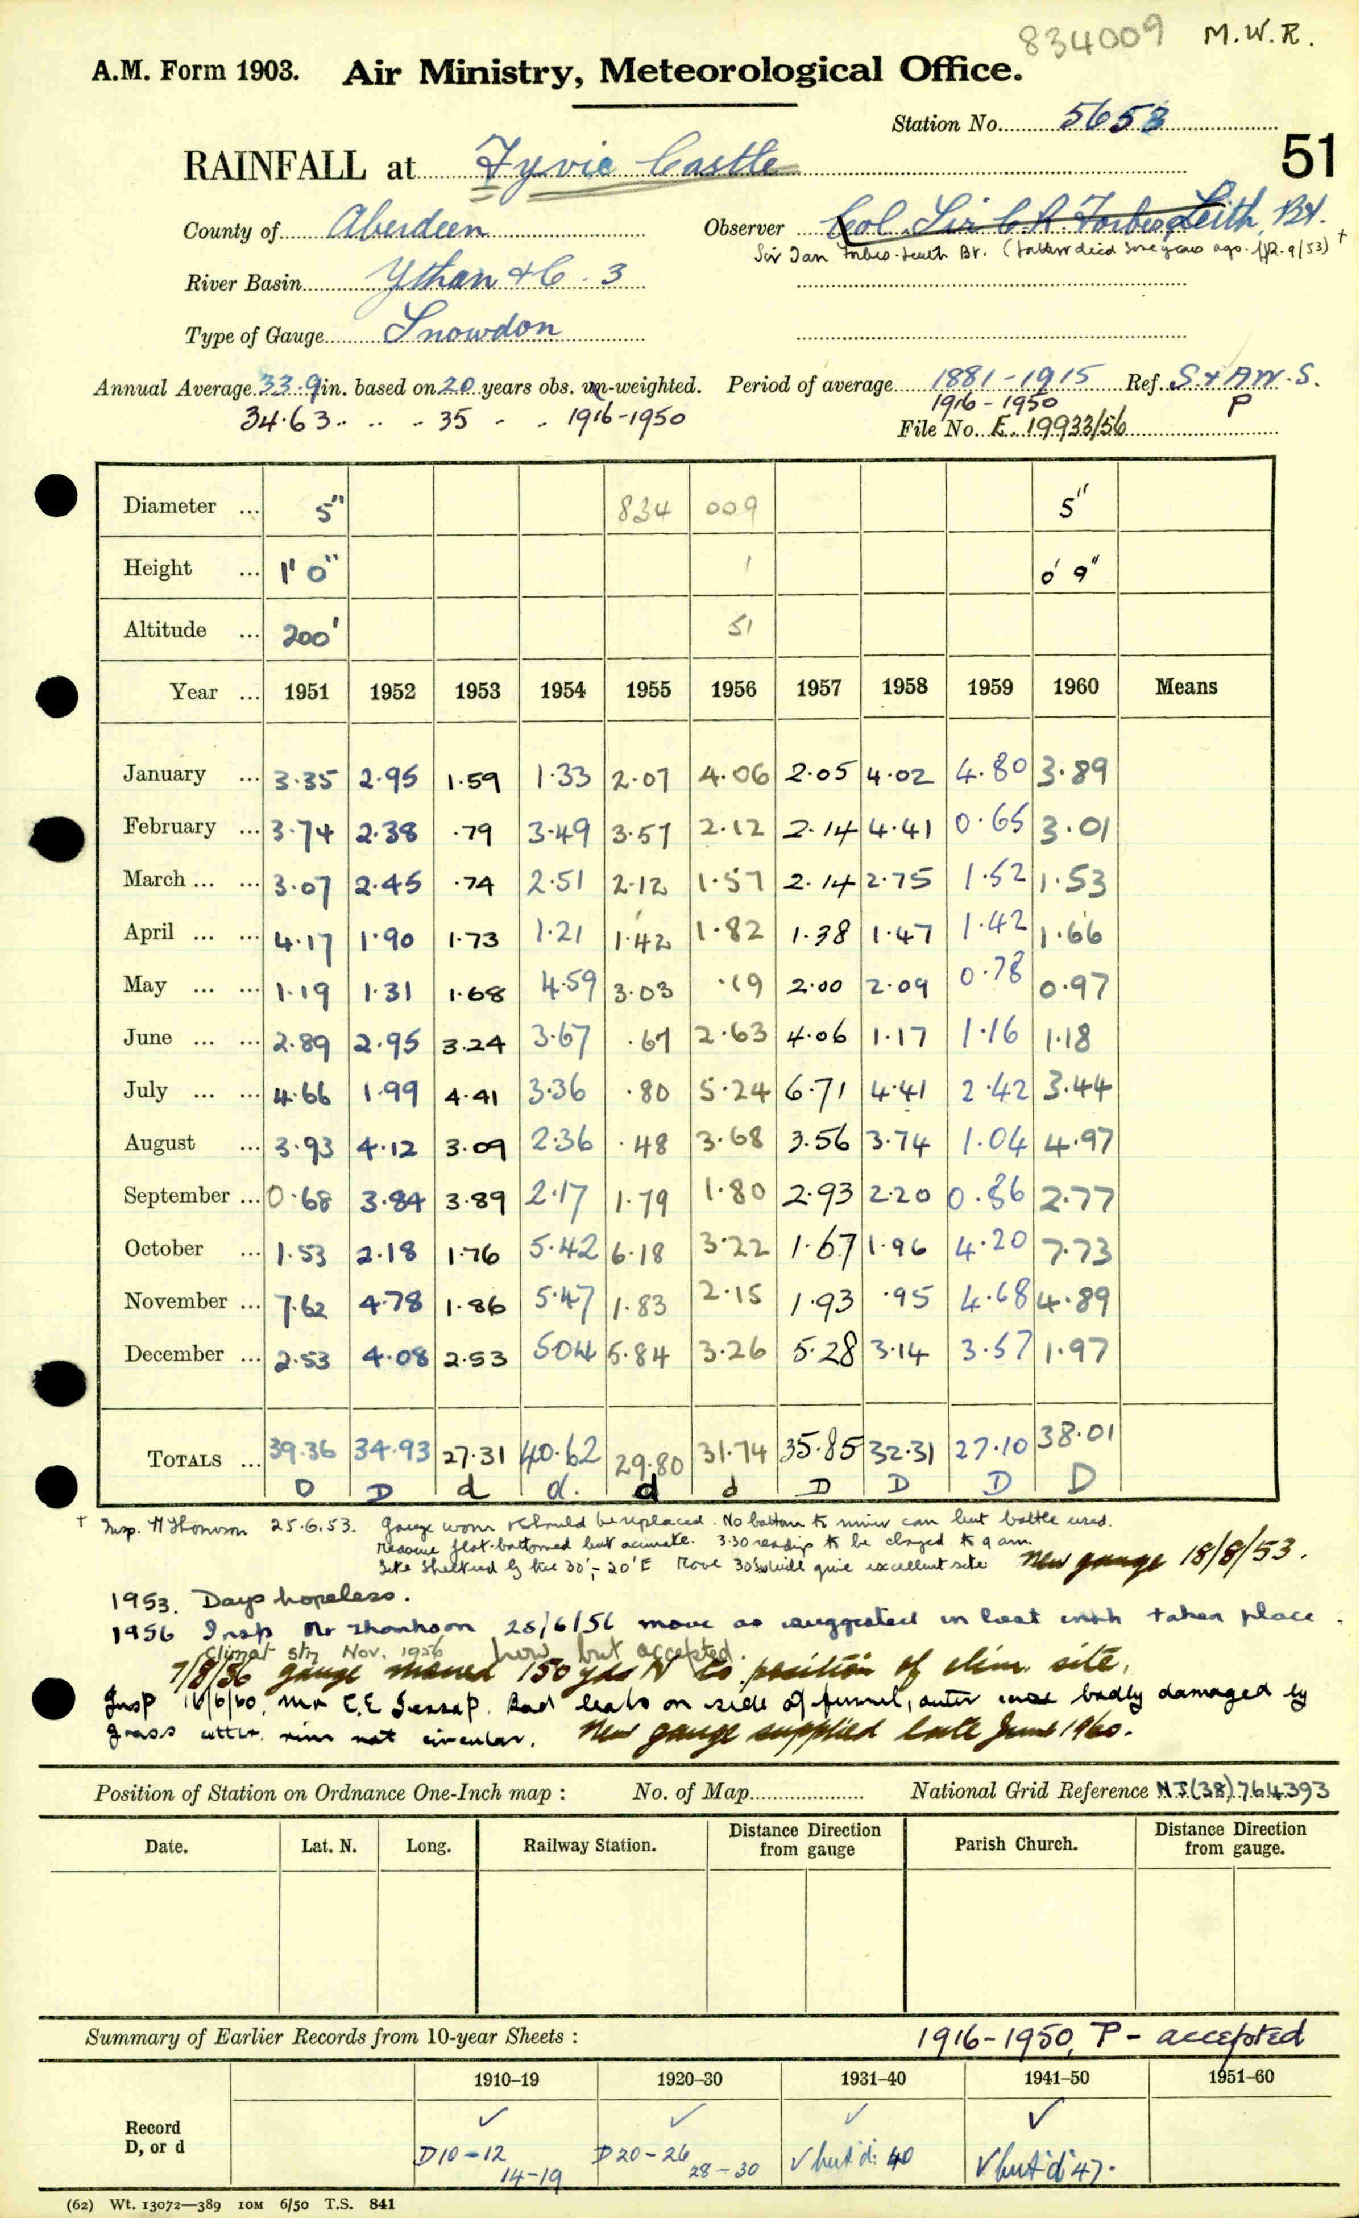 834009 M.W.R.
A.M. Form 1903. Air Ministry, Meteorological Office.
Station No. 5653
51
RAINFALL at Fyvie Castle
County of Aberdeen Observer Col. Sir C. R. Forbes Leith, Bt.
Sir Ian Forbes-Leith Bt. (father died some years ago 9/53) †
River Basin Ythan &C. 3
Type of Gauge Snowdon
Annual Average 33.9 in. based on 20 years obs. un-weighted. Period of average 1881-1915 Ref. S & AW.S.
34.63 " " " 35 " " 1916-1950 1916-1950 P
File No. E. 19933/56
Diameter ... 5" 834 009 5"
Height ... 1' 0" 1 0' 9"
Altitude ... 200' 51
Year ... 1951 1952 1953 1954 1955 1956 1957 1958 1959 1960 Means
January ... 3.35 2.95 1.59 1.33 2.07 4.06 2.05 4.02 4.80 3.89
February ... 3.74 2.38 .79 3.49 3.57 2.12 2.14 4.41 0.65 3.01
March ... ... 3.07 2.45 .74 2.51 2.12 1.57 2.14 2.75 1.52 1.53
April ... ... 4.17 1.90 1.73 1.21 1.42 1.82 1.38 1.47 1.42 1.66
May ... ... 1.19 1.31 1.68 4.59 3.03 .19 2.00 2.09 0.78 0.97
June ... ... 2.89 2.95 3.24 3.67 .67 2.63 4.06 1.17 1.16 1.18
July ... ... 4.66 1.99 4.41 3.36 .80 5.24 6.71 4.41 2.42 3.44
August ... 3.93 4.12 3.09 2.36 .48 3.68 3.56 3.74 1.04 4.97
September ... 0.68 3.84 3.89 2.17 1.79 1.80 2.93 2.20 0.86 2.77
October ... 1.53 2.18 1.76 5.42 6.18 3.22 1.67 1.96 4.20 7.73
November ... 7.62 4.78 1.86 5.47 1.83 2.15 1.93 .95 4.68 4.89
December ... 2.53 4.08 2.53 5.04 5.84 3.26 5.28 3.14 3.57 1.97
TOTALS ... 39.36 34.93 27.31 40.62 29.80 31.74 35.85 32.31 27.10 38.01
D D d d. d d D D D D
† Insp. Thomson 25.6.53. Gauge worn & should be replaced. No bottom to inner can but bottle used.
Measure flat-bottomed but accurate. 3.30 readings to be changed to 9 am.
Site sheltered by tree 30', 20' E Move 30' would give excellent site New gauge 18/8/53.
1953. Days hopeless.
1956 Insp Mr Thomson 28/6/56 move as suggested in last insp taken place.
Climat stn Nov. 1956 but accepted.
7/8/56 gauge moved 150 yds N to position of clim. site,
Insp 16/6/60, Mr C.E. Bad leaks on side of funnel, outer case badly damaged by
grass cutter. rim not circular. New gauge supplied late June 1960.
Position of Station on Ordnance One-Inch map : No. of Map National Grid Reference NJ(38)764393
Date. Lat. N. Long. Railway Station. Distance Direction from gauge Parish Church. Distance Direction from gauge.
Summary of Earlier Records from 10-year Sheets : 1916-1950, P - accepted
1910–19 1920–30 1931–40 1941–50 1951–60
Record ✓ ✓ ✓ ✓
D, or d D10-12 D20-26 ✓ but 'd': 40 ✓ but 'd' 47.
14-19 28-30
(62) Wt. 13072—389 10M 6/50 T.S. 841